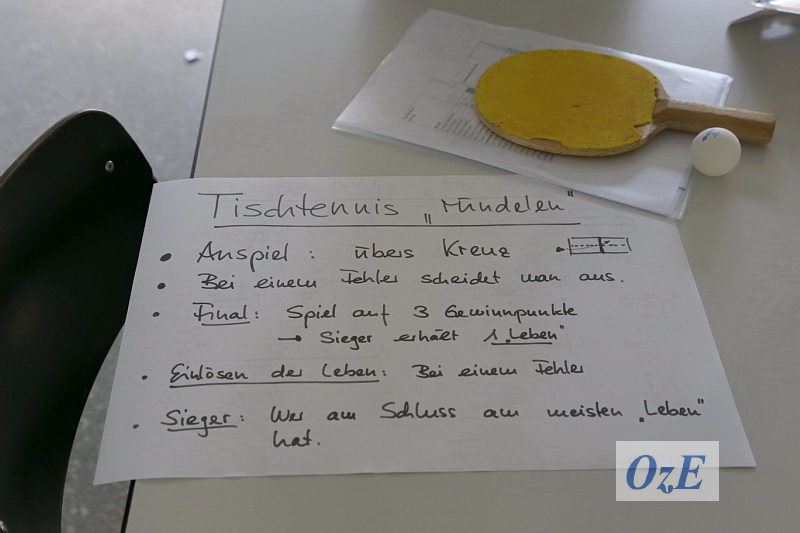 Tischtennis „Mündelen"
• Anspiel : übers Kreuz
• Bei einem Fehler scheidet man aus.
• Final : Spiel auf 3 Gewinnpunkte
→ Sieger erhält 1 „Leben"
• Einlösen der Leben : Bei einem Fehler
• Sieger : Wer am Schluss am meisten „Leben"
hat.
OzE